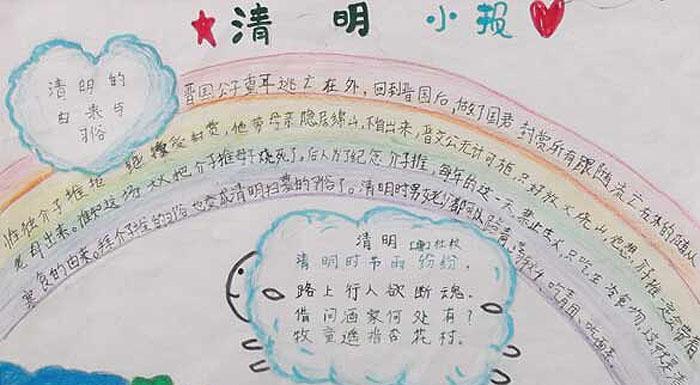 清明小报
清明的
由来与
习俗
晋国公子重耳逃亡在外，回到晋国后，做了国君封赏所有跟随流亡在外的随从
惟独介子推拒绝接受封赏，他带母亲隐居绵山，不肯出来，晋文公无计可施，只好放火烧山，他想，介子推
老母出来。谁知这场大火把介子推母子烧死了，后人为了纪念介子推，每年的这一天，禁止生火，
寒食的由来。拜介子推的习俗也变成清明扫墓的习俗了。清明时
清明 [唐]杜牧
清明时节雨纷纷，
路上行人欲断魂。
借问酒家何处有？
牧童遥指杏花村。